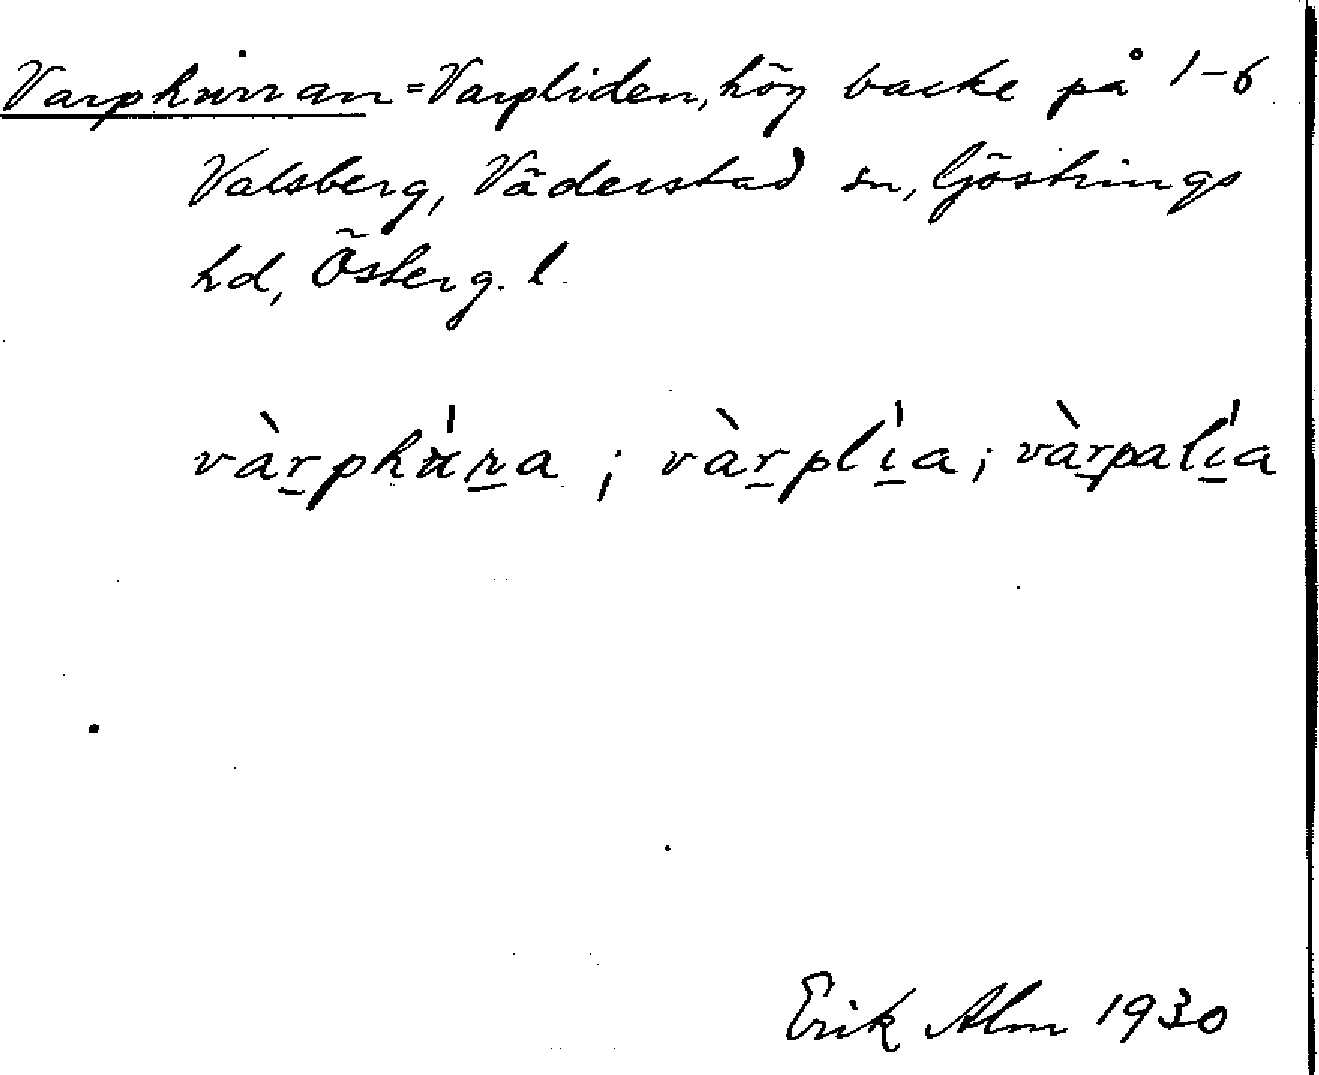 Varpkurran = Varpliden, hög backe på 1-6
Valsberg, Väderstad sn, Göstrings
hd, Österg. l.
vàr̲pkúr̲a ; vàr̲plí̲a ; vàr̲palí̲a
Erik Alm 1930